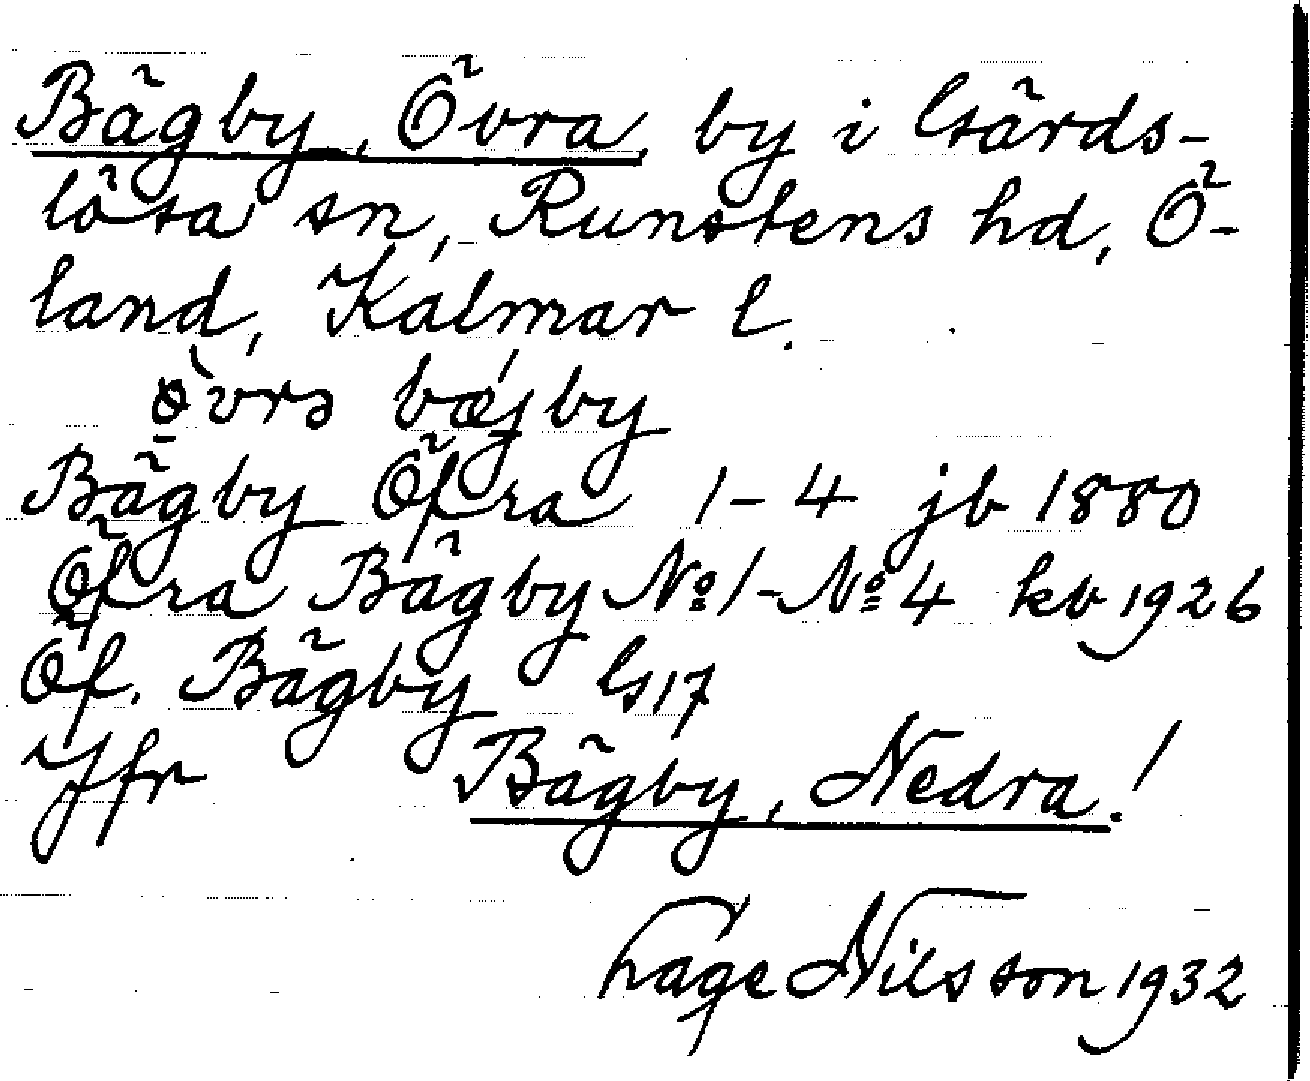 Bägby, Övra, by i Gärds-
lösa sn, Runstens hd, Ö-
land, Kalmar l.
bægby
Bägby Öfra 1-4 jb 1880
Öfra Bägby No 1-No 4 kb 1926
Öf. Bägby GS 17
Jfr Bägby, Nedra!
Hage Nilsson 1932